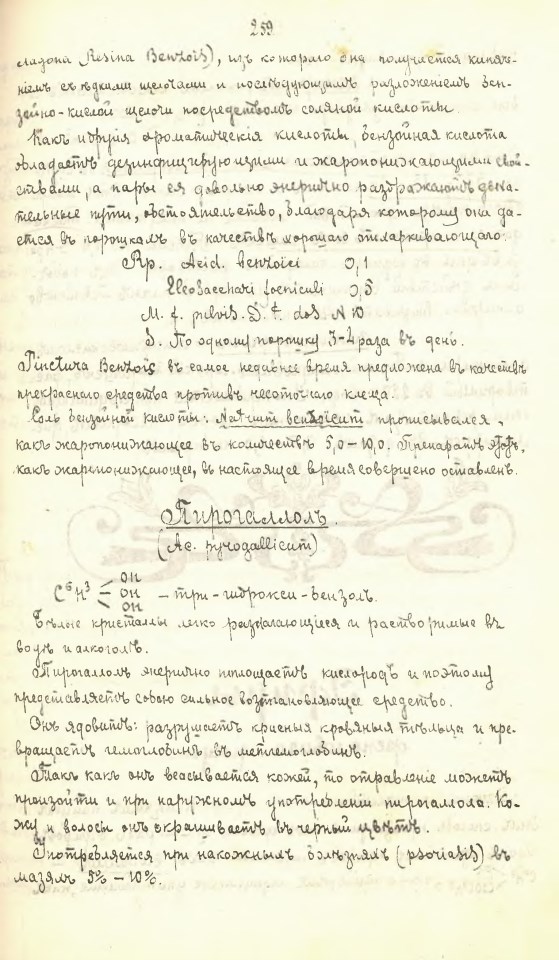 259
ладона Resina Benzois), изъ котораго она получается кипяче-
ніемъ съ ѣдкими щелочами и послѣдующимъ разложеніемъ бен-
зойно-кислой щелочи посредствомъ соляной кислоты.
Какъ и другія ароматическія кислоты, бензойная кислота
обладаетъ дезинфицирующими и жаропонижающими свой-
ствами, а пары ея довольно энергично раздражаютъ дыха-
тельные пути, обстоятельство, благодаря которому она да-
ется въ порошкахъ въ качествѣ хорошаго отхаркивающаго.
Rp. Acid. benzoici 0,1
Eleosacchari foeniculi 0,5
M. f. pulvis. D. t. dos N 10
S. По одному порошку 3-4 раза въ день.
Tinctura Benzois въ самое недавнее время предложена въ качествѣ
прекраснаго средства противъ чесоточнаго клеща.
Соль бензойной кислоты: Natrium benzoicum прописывался,
какъ жаропонижающее въ количествѣ 5,0-10,0. Препаратъ этотъ,
какъ жаропонижающее, въ настоящее время совершено оставленъ.
Пирогаллолъ.
(Ac. pyrogallicum)
OH
C⁶H³ OH — три-гидрокси-бензолъ.
OH
Бѣлые кристаллы легко разлагающіеся и растворимые въ
водѣ и алкоголѣ.
Пирогаллолъ энергично поглощаетъ кислородъ и поэтому
представляетъ собою сильное возстановляющее средство.
Онъ ядовитъ: разрушаетъ красныя кровяныя тѣльца и пре-
вращаетъ гемоглобинъ въ метгемоглобинъ.
Такъ какъ онъ всасывается кожей, то отравленіе можетъ
произойти и при наружномъ употребленіи пирогаллола. Ко-
жу и волосы онъ окрашиваетъ въ черный цвѣтъ.
Употребляется при накожныхъ болѣзняхъ (psoriasis) въ
мазяхъ 5% — 10%.